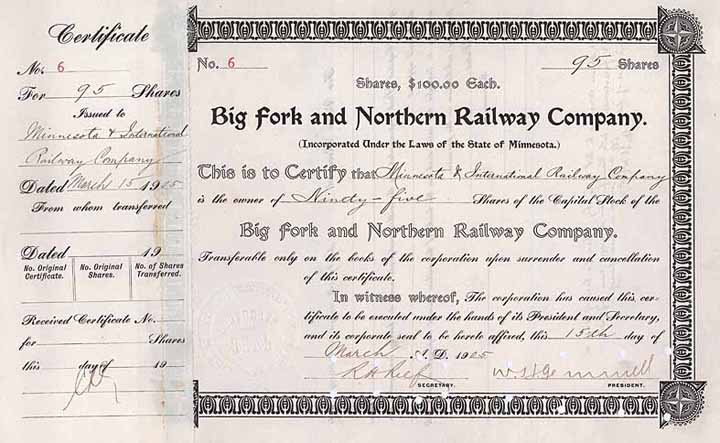 Certificate
No. 6
For 95 Shares
Issued to
Minnesota & International
Railway Company
Dated March 15 1905
From whom transferred
Dated 19
No. Original Certificate.
No. Original Shares.
No. of Shares Transferred.
Received Certificate No.
for Shares
this day of 19
No. 6
95 Shares
Shares, $100.00 Each.
Big Fork and Northern Railway Company.
(Incorporated Under the Laws of the State of Minnesota.)
This is to Certify that Minnesota & International Railway Company
is the owner of Nindy-five Shares of the Capital Stock of the
Big Fork and Northern Railway Company.
Transferable only on the books of the corporation upon surrender and cancellation
of this certificate.
In witness whereof, The corporation has caused this cer-
tificate to be executed under the hands of its President and Secretary,
and its corporate seal to be hereto affixed, this 15th day of
March A. D. 1905
SECRETARY.
W. H. Gemmell
PRESIDENT.